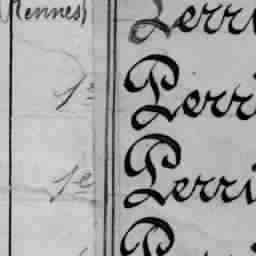 Rennes) Perri
1e Perri
1e Perri
P